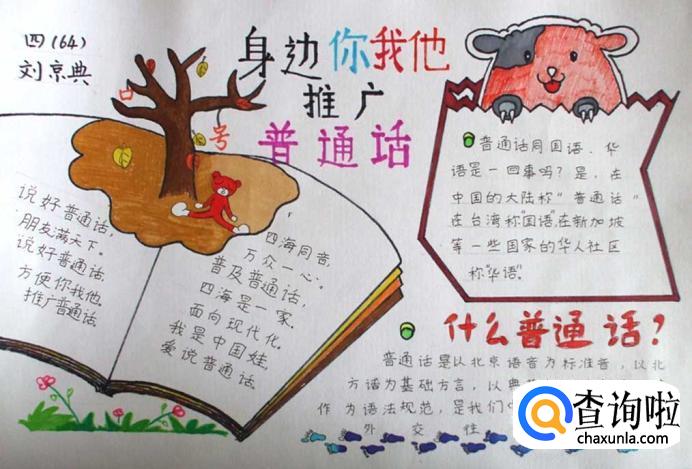 四(64)
刘京典
身边你我他
推广
普通话
口
号
说好普通话,
朋友满天下。
说好普通话,
方便你我他
推广普通话
四海同音,
万众一心。
普及普通话,
四海是一家,
面向现代化。
我是中国娃,
爱说普通话。
普通话同国语、华
语是一回事吗?是,在
中国的大陆称"普通话"
在台湾称"国语",在新加坡
等一些国家的华人社区
称"华语"。
什么普通话?
普通话是以北京语音为标准音,以北
方话为基础方言,以典
作为语法规范,是我们
外交性
查询啦
chaxunla.com